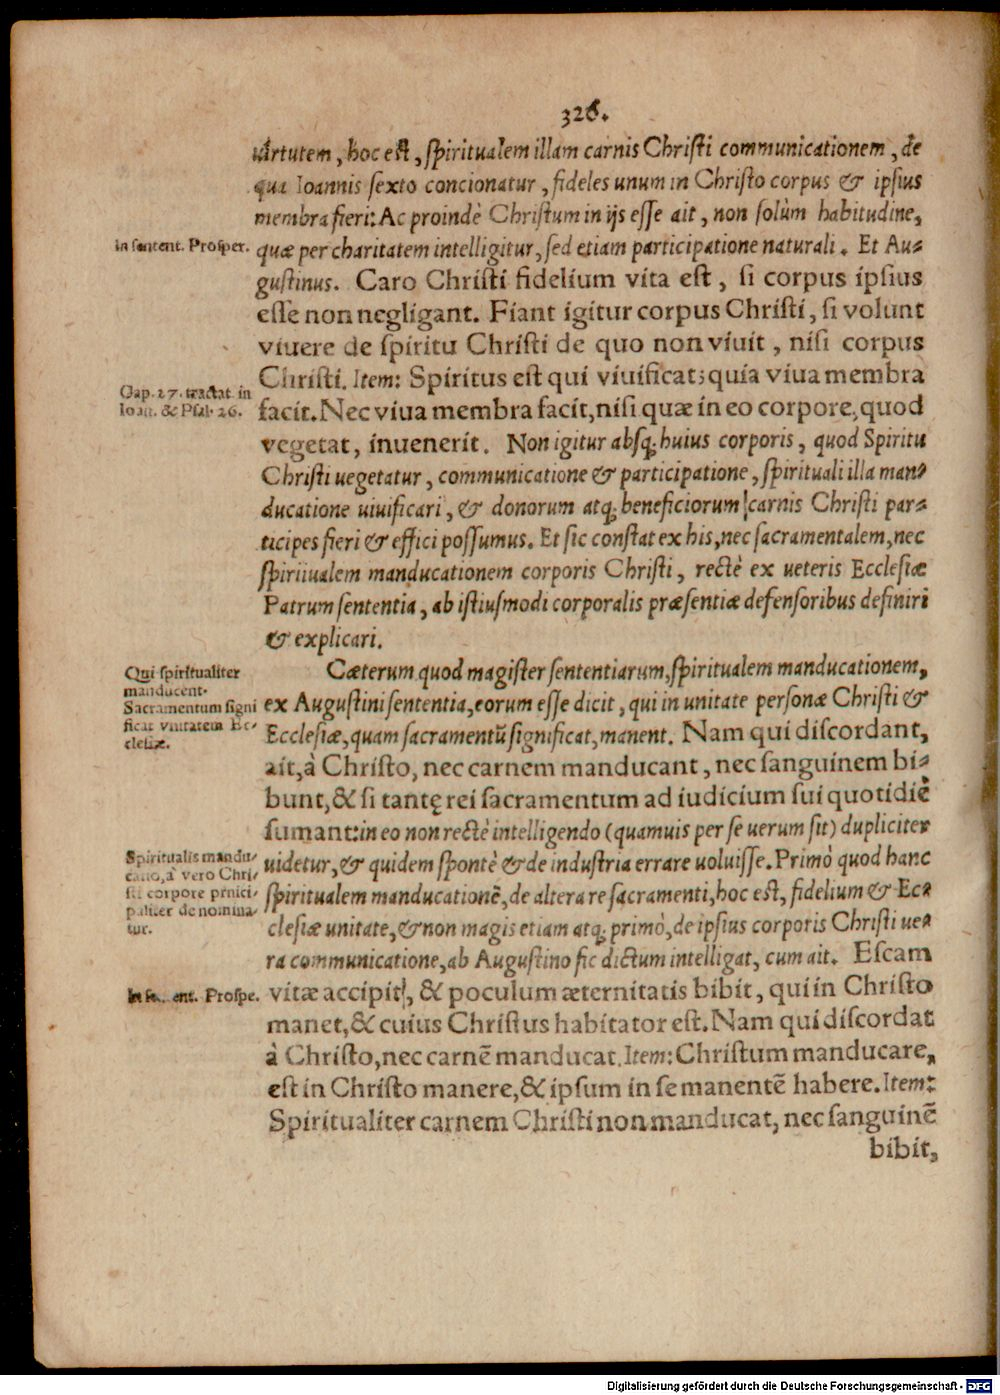 326.
uirtutem, hoc est, spiritualem illam carnis Christi communicationem, de
qua Ioannis sexto concionatur, fideles unum in Christo corpus & ipsius
membra fieri: Ac proindè Christum in ijs esse ait, non solùm habitudine,
In sentent. Prosper.
quæ per charitatem intelligitur, sed etiam participatione naturali. Et Au-
gustinus. Caro Christi fidelium vita est, si corpus ipsius
esse non negligant. Fiant igitur corpus Christi, si volunt
viuere de spiritu Christi de quo non viuit, nisi corpus
Christi. Item: Spiritus est qui viuificat; quia viua membra
Cap. 27. tractat. in
Ioan. & Psal. 26.
facit. Nec viua membra facit, nisi quæ in eo corpore, quod
vegetat, inuenerit. Non igitur absq; huius corporis, quod Spiritu
Christi uegetatur, communicatione & participatione, spirituali illa man-
ducatione uiuificari, & donorum atq; beneficiorum carnis Christi par-
ticipes fieri & effici possumus. Et sic constat ex his, nec sacramentalem, nec
spiriiualem manducationem corporis Christi, rectè ex ueteris Ecclesiæ
Patrum sententia, ab istiusmodi corporalis præsentiæ defensoribus definiri
& explicari.
Qui spiritualiter
manducent.
Sacramentum signi
ficat vnitatem Ec-
clesiæ.
Cæterum quod magister sententiarum, spiritualem manducationem,
ex Augustini sententia, eorum esse dicit, qui in unitate personæ Christi &
Ecclesiæ, quam sacramentũ significat, manent. Nam qui discordant,
ait, à Christo, nec carnem manducant, nec sanguinem bi-
bunt, & si tantę rei sacramentum ad iudicium sui quotidiè
sumant: in eo non rectè intelligendo (quamuis per se uerum sit) dupliciter
Spiritualis mandu-
catio, à vero Chri-
sti corpore prnici-
paliter denomina-
tur.
uidetur, & quidem spontè & de industria errare uoluisse. Primò quod hanc
spiritualem manducationẽ, de altera re sacramenti, hoc est, fidelium & Ec-
clesiæ unitate, & non magis etiam atq; primò, de ipsius corporis Christi ue-
ra communicatione, ab Augustino sic dictum intelligat, cum ait. Escam
In se.. ent. Prospe.
vitæ accipit, & poculum æternitatis bibit, qui in Christo
manet, & cuius Christus habitator est. Nam qui discordat
à Christo, nec carnẽ manducat. Item: Christum manducare,
est in Christo manere, & ipsum in se manentẽ habere. Item:
Spiritualiter carnem Christi non manducat, nec sanguinẽ
bibit,
Digitalisierung gefördert durch die Deutsche Forschungsgemeinschaft - DFG